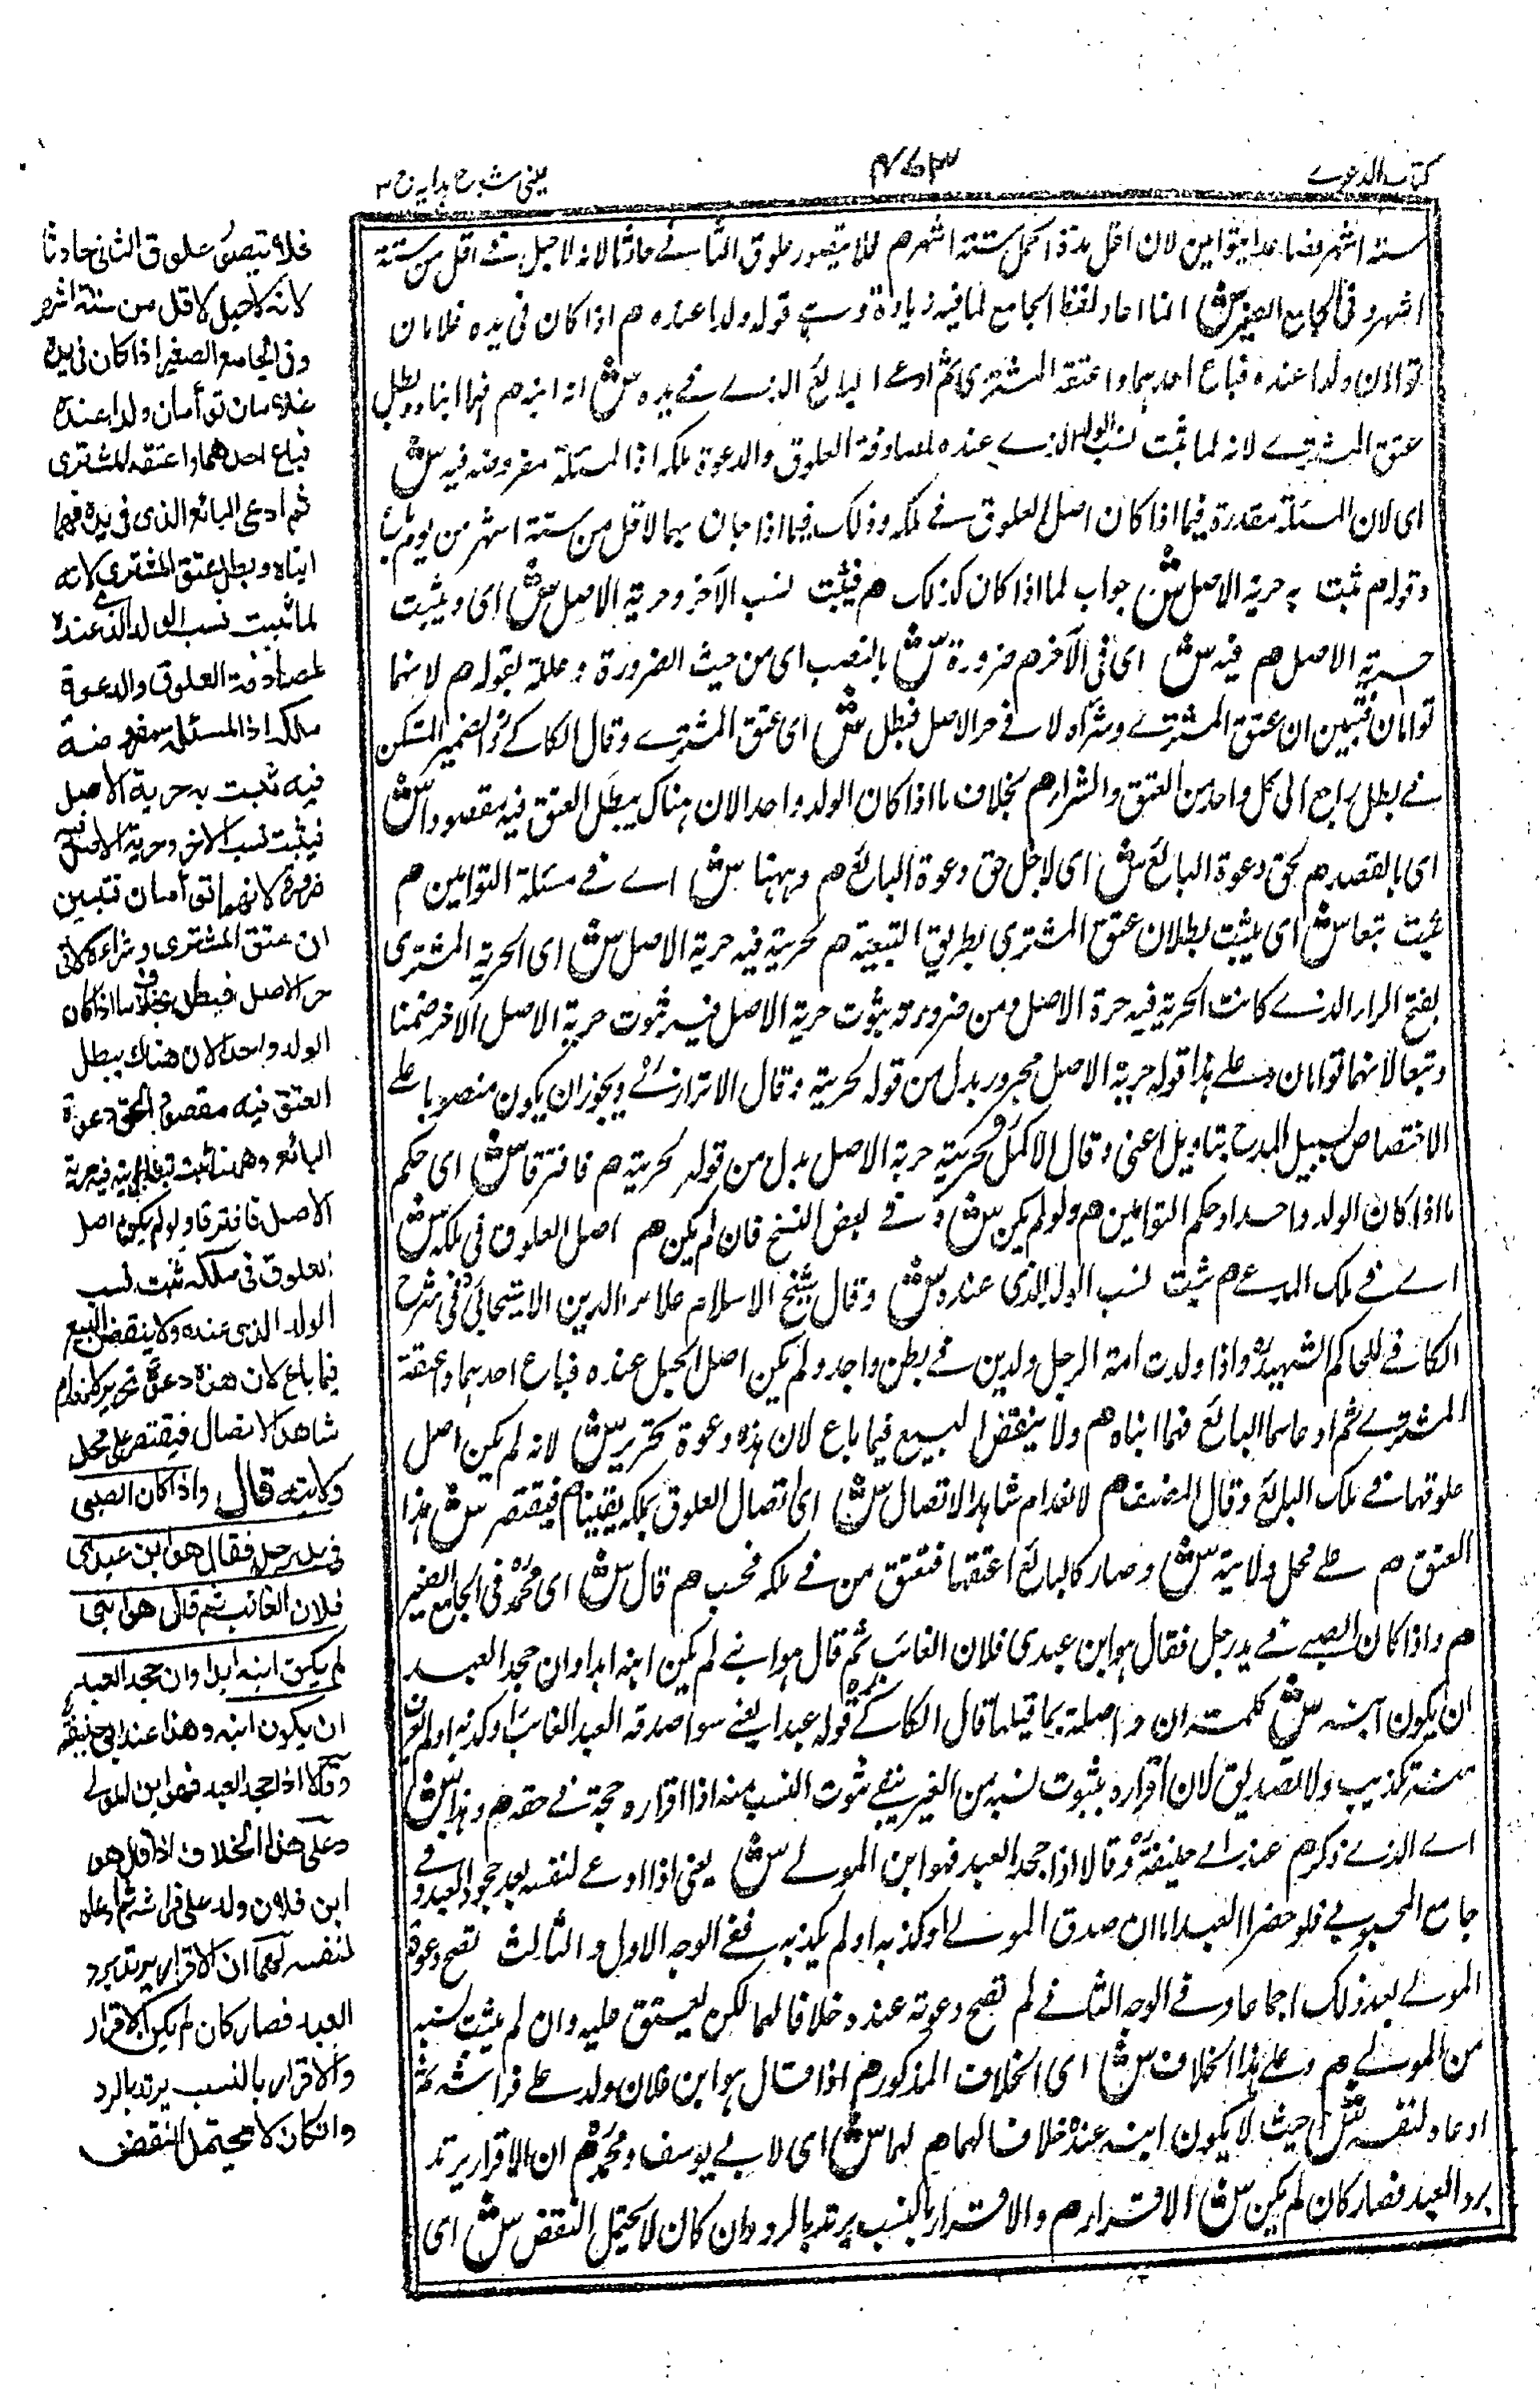 كتاب الدعوے
٤٧٣
عينى شرح هدايه ج ٣
ستة اشهر فصاعدا يتوامين لان اقل مدة الحمل ستة اشهر هم فلا يتصور علوق الثانے حادثا لانه لا حبل شے اقل من ستة
اشهر وفى الجامع الصغير ش انما اعاد لفظ الجامع لما فيه زيادة وہے قوله ولدا عنده هم اذا كان فى يده غلامان
توامان ولدا عنده فباع احدهما واعتقه المشترى ثم ادعے البائع الذے فے يده ش انه ابنه هم فهما ابناه وبطل
عتق المشترے لانه لما ثبت نسب الولد الذے عنده لمصادفة العلوق والدعوة ملكه اذ المسئلة مفروضة فيه ش
اى لان المسئلة مقدرة فيما اذا كان اصل العلوق فے ملكه وذلك فيما اذا جاءت بهما لاقل من ستة اشهر من يوم باع
وقوله هم ثبت به حرية الاصل ش جواب لما اذا كان كذلك هم فيثبت نسب الآخر وحرية الاصل ش اى ويثبت
حرية الاصل هم فيه ش اى فى الآخر هم ضرورة ش بالنصب اى من حيث الضرورة وعلله بقوله هم لانهما
توامان فتبين ان عتق المشترے وشراه لاقے حر الاصل فبطل ش اى عتق المشترے وقال الكاكے رح الضمير المستكن
فے بطل راجع الى كل واحد من العتق والشراء هم بخلاف ما اذا كان الولد واحدا لان هناك يبطل العتق فيه مقصودا ش
اى بالقصد هم لحق دعوة البائع ش اى لاجل حق دعوة البائع هم وههنا ش اے فے مسئلة التوامين هم
ثبت تبعا ش اى يثبت بطلان عتق المشترى بطريق التبعية هم لحريته فيه حرية الاصل ش اى الحرية المشترى
بفتح الراء الذے كانت الحرية فيه حرة الاصل ومن ضرورته ثبوت حرية الاصل فيه ثبوت حرية الاصل الآخر ضمنا
وتبعا لانهما توامان وعلے هذا قوله حرية الاصل مجرور بدل من قوله لحريته وقال الاترازے رح ويجوز ان يكون منصوبا علے
الاختصاص لسبيل المدح بتاويل اعنى وقال الاكمل رح لحريته حرية الاصل بدل من قوله لحريته هم فافترقا ش اى حكم
ما اذا كان الولد واحدا وحكم التوامين هم ولو لم يكن ش وفے بعض النسخ فان لم يكن هم اصل العلوق فى ملكه ش
اے فے ملك المدعے هم ثبت نسب الولد الذى عنده ش وقال شيخ الاسلام علاء الدين الاسبيجابى رح فى شرح
الكافے للحاكم الشهيد رح واذا ولدت امة الرجل ولدين فے بطن واحد ولم يكن اصل الحبل عنده فباع احدهما واعتقه
المشترے ثم ادعاهما البائع فهما ابناه هم ولا ينقض البيع فيما باع لان هذه دعوة تحرير ش لانه لم يكن اصل
علوقهما فے ملك البائع وقال المصنف هم لانعدام شاهد الاتصال ش اى اتصال العلوق بملكه يقينا هم فيقتصر ش هذا
العتق هم علے محل ولايته ش وصار كالبائع اعتقهما فتعتق من فے ملكه فحسب هم قال ش اى محمد رح فى الجامع الصغير
هم واذا كان الصبے فے يد رجل فقال هو ابن عبدى فلان الغائب ثم قال هو ابنے لم يكن ابنه ابدا وان جحد العبد
ان يكون ابنه ش كلمة ان واصلة بما قبلها قال الكاكے رح قوله عبدا يعنے سواء صدقه العبد الغائب او كذبه او لم يعرف
منه تكذيب ولا تصديق لان اقراره بثبوت نسبه من الغير ينفے ثبوت النسب منه اذ اقراره حجة فے حقه هم وهذا ش
اے الذے ذكر هم عند ابے حنيفة رح وقالا اذا جحد العبد فهو ابن المولے ش يعنى اذا ادعے لنفسه بعد جحود العبد وفے
جامع المحبوبے فلو حضر العبد اما ان صدق المولے او كذبه او لم يكذبه ففے الوجه الاول والثالث تصح دعوة
المولے بعد ذلك اجماعا وفے الوجه الثانے لم تصح دعوته عنده خلافا لهما لكن يعتق عليه وان لم يثبت نسبه
من المولے هم وعلے هذا الخلاف ش اى الخلاف المذكور هم اذا قال هو ابن فلان ولد علے فراشه ثم
ادعاه لنفسه ش حيث لا يكون ابنه عنده خلافا لهما هم لهما ش اى لابے يوسف ومحمد رح هم ان الاقرار يرتد
برد العبد فصار كان لم يكن ش الاقرار هم والاقرار بالنسب يرتد بالرد وان كان لا يحتمل النقض ش اى
فلا يتصور علوق الثانى حادثا
لانه لا حبل لاقل من ستة اشهر
وفى الجامع الصغير اذا كان فى يده
غلامان توأمان ولدا عنده
فباع احدهما واعتقه المشترى
ثم ادعى البائع الذى فى يده فهما
ابناه وبطل عتق المشترى لانه
لما ثبت نسب الولد الذے عنده
لمصادفة العلوق والدعوة
ملكه اذ المسئلة مفروضة
فيه ثبت به حرية الاصل
فيثبت نسب الآخر وحرية الاصل فيه
ضرورة لانهما توأمان فتبين
ان عتق المشترى وشراءه لاقى
حر الاصل فبطل بخلاف ما اذا كان
الولد واحدا لان هناك يبطل
العتق فيه مقصودا لحق دعوة
البائع وههنا ثبت تبعا لحريته فيه حرية
الاصل فافترقا ولو لم يكن اصل
العلوق فى ملكه ثبت نسب
الولد الذى عنده ولا ينقض البيع
فيما باع لان هذه دعوة تحرير لانعدام
شاهد الاتصال فيقتصر على محل
ولايته قال واذا كان الصبى
فى يد رجل فقال هو ابن عبدى
فلان الغائب ثم قال هو ابنى
لم يكن ابنه ابدا وان جحد العبد
ان يكون ابنه وهذا عند ابى حنيفة رح
وقالا اذا جحد العبد فهو ابن المولے
وعلى هذا الخلاف اذا قال هو
ابن فلان ولد على فراشه ثم ادعاه
لنفسه لهما ان الاقرار يرتد برد
العبد فصار كان لم يكن الاقرار
والاقرار بالنسب يرتد بالرد
وان كان لا يحتمل النقض